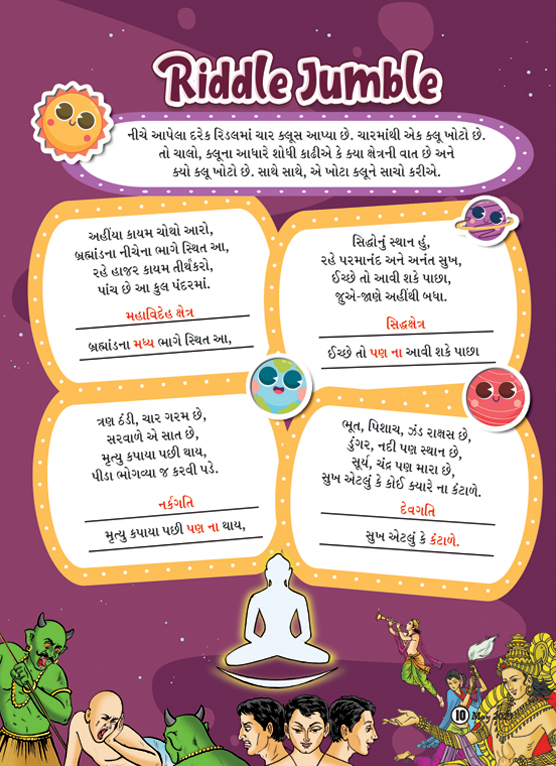 Riddle Jumble
નીચે આપેલા દરેક રિડલમાં ચાર ક્લૂસ આપ્યા છે. ચારમાંથી એક ક્લૂ ખોટો છે.
તો ચાલો, ક્લૂના આધારે શોધી કાઢીએ કે ક્યા ક્ષેત્રની વાત છે અને
ક્યો ક્લૂ ખોટો છે. સાથે સાથે, એ ખોટા ક્લૂને સાચો કરીએ.
અહીંયા કાયમ ચોથો આરો,
બ્રહ્માંડના નીચેના ભાગે સ્થિત આ,
રહે હાજર કાયમ તીર્થંકરો,
પાંચ છે આ કુલ પંદરમાં.
મહાવિદેહ ક્ષેત્ર
બ્રહ્માંડના મધ્ય ભાગે સ્થિત આ,
સિદ્ધોનું સ્થાન હું,
રહે પરમાનંદ અને અનંત સુખ,
ઈચ્છે તો આવી શકે પાછા,
જુએ-જાણે અહીંથી બધા.
સિદ્ધક્ષેત્ર
ઈચ્છે તો પણ ના આવી શકે પાછા
ત્રણ ઠંડી, ચાર ગરમ છે,
સરવાળે એ સાત છે,
મૃત્યુ કપાયા પછી થાય,
પીડા ભોગવ્યા જ કરવી પડે.
નર્કગતિ
મૃત્યુ કપાયા પછી પણ ના થાય,
ભૂત, પિશાચ, ઝંડ રાક્ષસ છે,
ડુંગર, નદી પણ સ્થાન છે,
સૂર્ય, ચંદ્ર પણ મારા છે,
સુખ એટલું કે કોઈ ક્યારે ના કંટાળે.
દેવગતિ
સુખ એટલું કે કંટાળે.
10 May